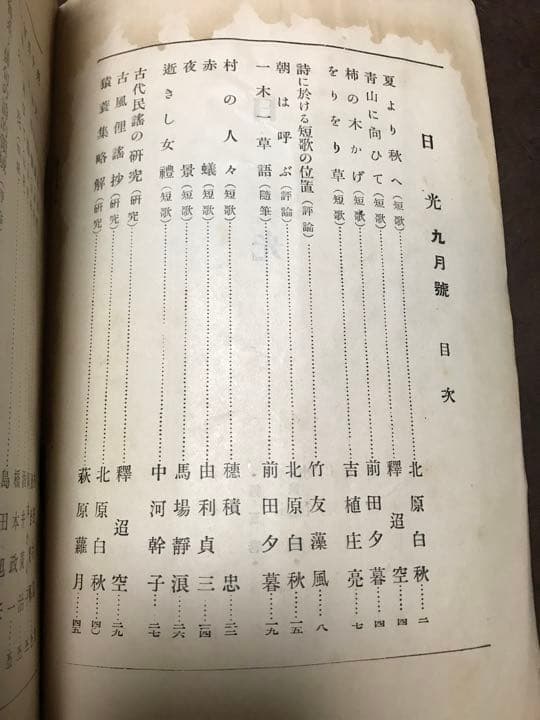 日光 九月號 目次
夏より秋へ(短歌)……北原白秋……二
青山に向ひて(短歌)……釋迢空……四
柿の木かげ(短歌)……前田夕暮……四
をりをり草(短歌)……吉植庄亮……七
詩に於ける短歌の位置(評論)……竹友藻風……八
朝は呼ぶ(評論)……北原白秋……一五
一木一草語(隨筆)……前田夕暮……一九
村の人々(短歌)……穗積忠……二二
赤蟻(短歌)……由利貞三……二四
夜景(短歌)……馬場靜浪……二六
逝きし女禮(短歌)……中河幹子……二七
古代民謠の研究(研究)……釋迢空……二九
古風俚謠抄(研究)……北原白秋……四〇
猿蓑集略解(研究)……萩原蘿月……四五